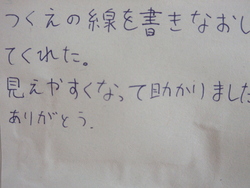 つくえの線を書きなおし
てくれた。
見えやすくなって助かりました
ありがとう.